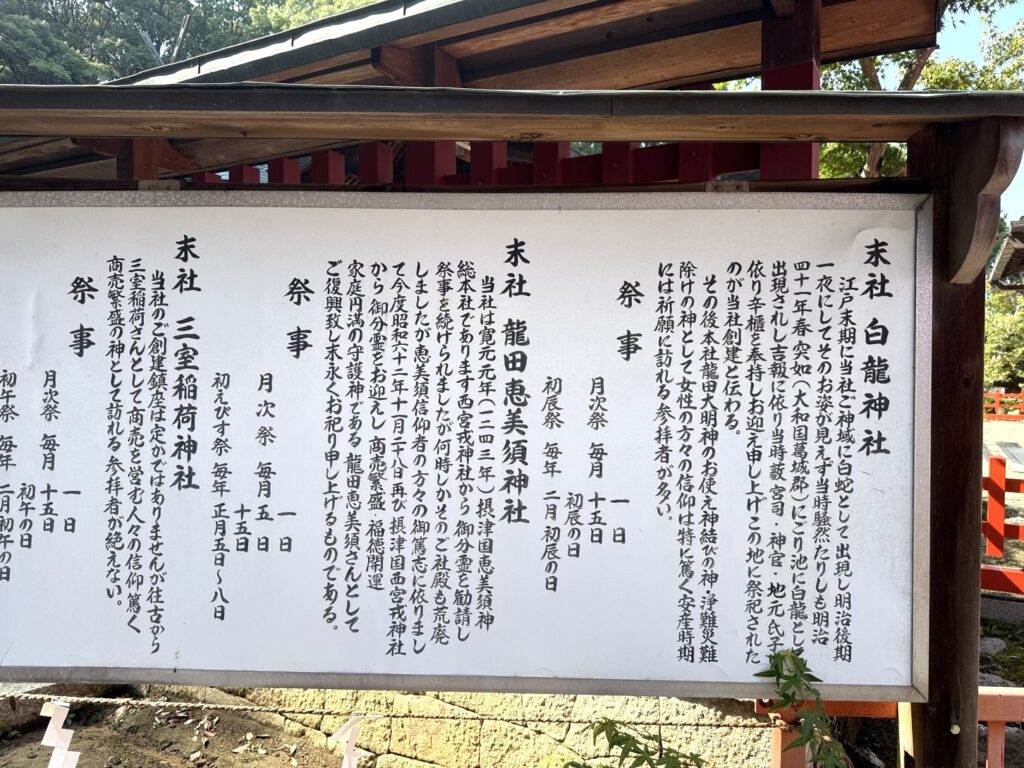 末社 白龍神社
江戸末期に当社ご神域に白蛇として出現し明治後期
一夜にしてそのお姿が見えず当時騒然たりしも明治
四十一年春 突如(大和国葛城郡)にごり池に白龍とし
出現されし吉報に依り当時藪 宮司・神官・地元氏子
依り辛櫃を奉持しお迎え申し上げこの地に祭祀された
のが当社創建と伝わる。
その後本社龍田大明神のお使え神結びの神・浄難災難
除けの神として女性の方々の信仰は特に篤く安産時期
には祈願に訪れる参拝者が多い。
祭事
月次祭 毎月 一日
十五日
初辰の日
初辰祭 毎年 二月初辰の日
末社 龍田恵美須神社
当社は寛元元年(一二四三年)摂津国恵美須神
総本社であります西宮戎神社から御分霊を勧請し
祭事を続けられましたが何時しかそのご社殿も荒廃
しましたが恵美須信仰者の方々の御篤志に依りまし
て今度昭和六十二年十一月二十八日再び摂津国西宮戎神社
から御分霊をお迎えし 商売繁盛 福徳開運
家庭円満の守護神である 龍田恵美須さんとして
ご復興致し末永くお祀り申し上げるものである。
祭事
月次祭 毎月 一日
五日
十五日
初えびす祭 毎年 正月五日〜八日
末社 三室稲荷神社
当社のご創建鎮座は定かではありませんが往古から
三室稲荷さんとして商売を営む人々の信仰篤く
商売繁盛の神として訪れる参拝者が絶えない。
祭事
月次祭 毎月 一日
十五日
初午の日
初午祭 毎年 二月初午の日